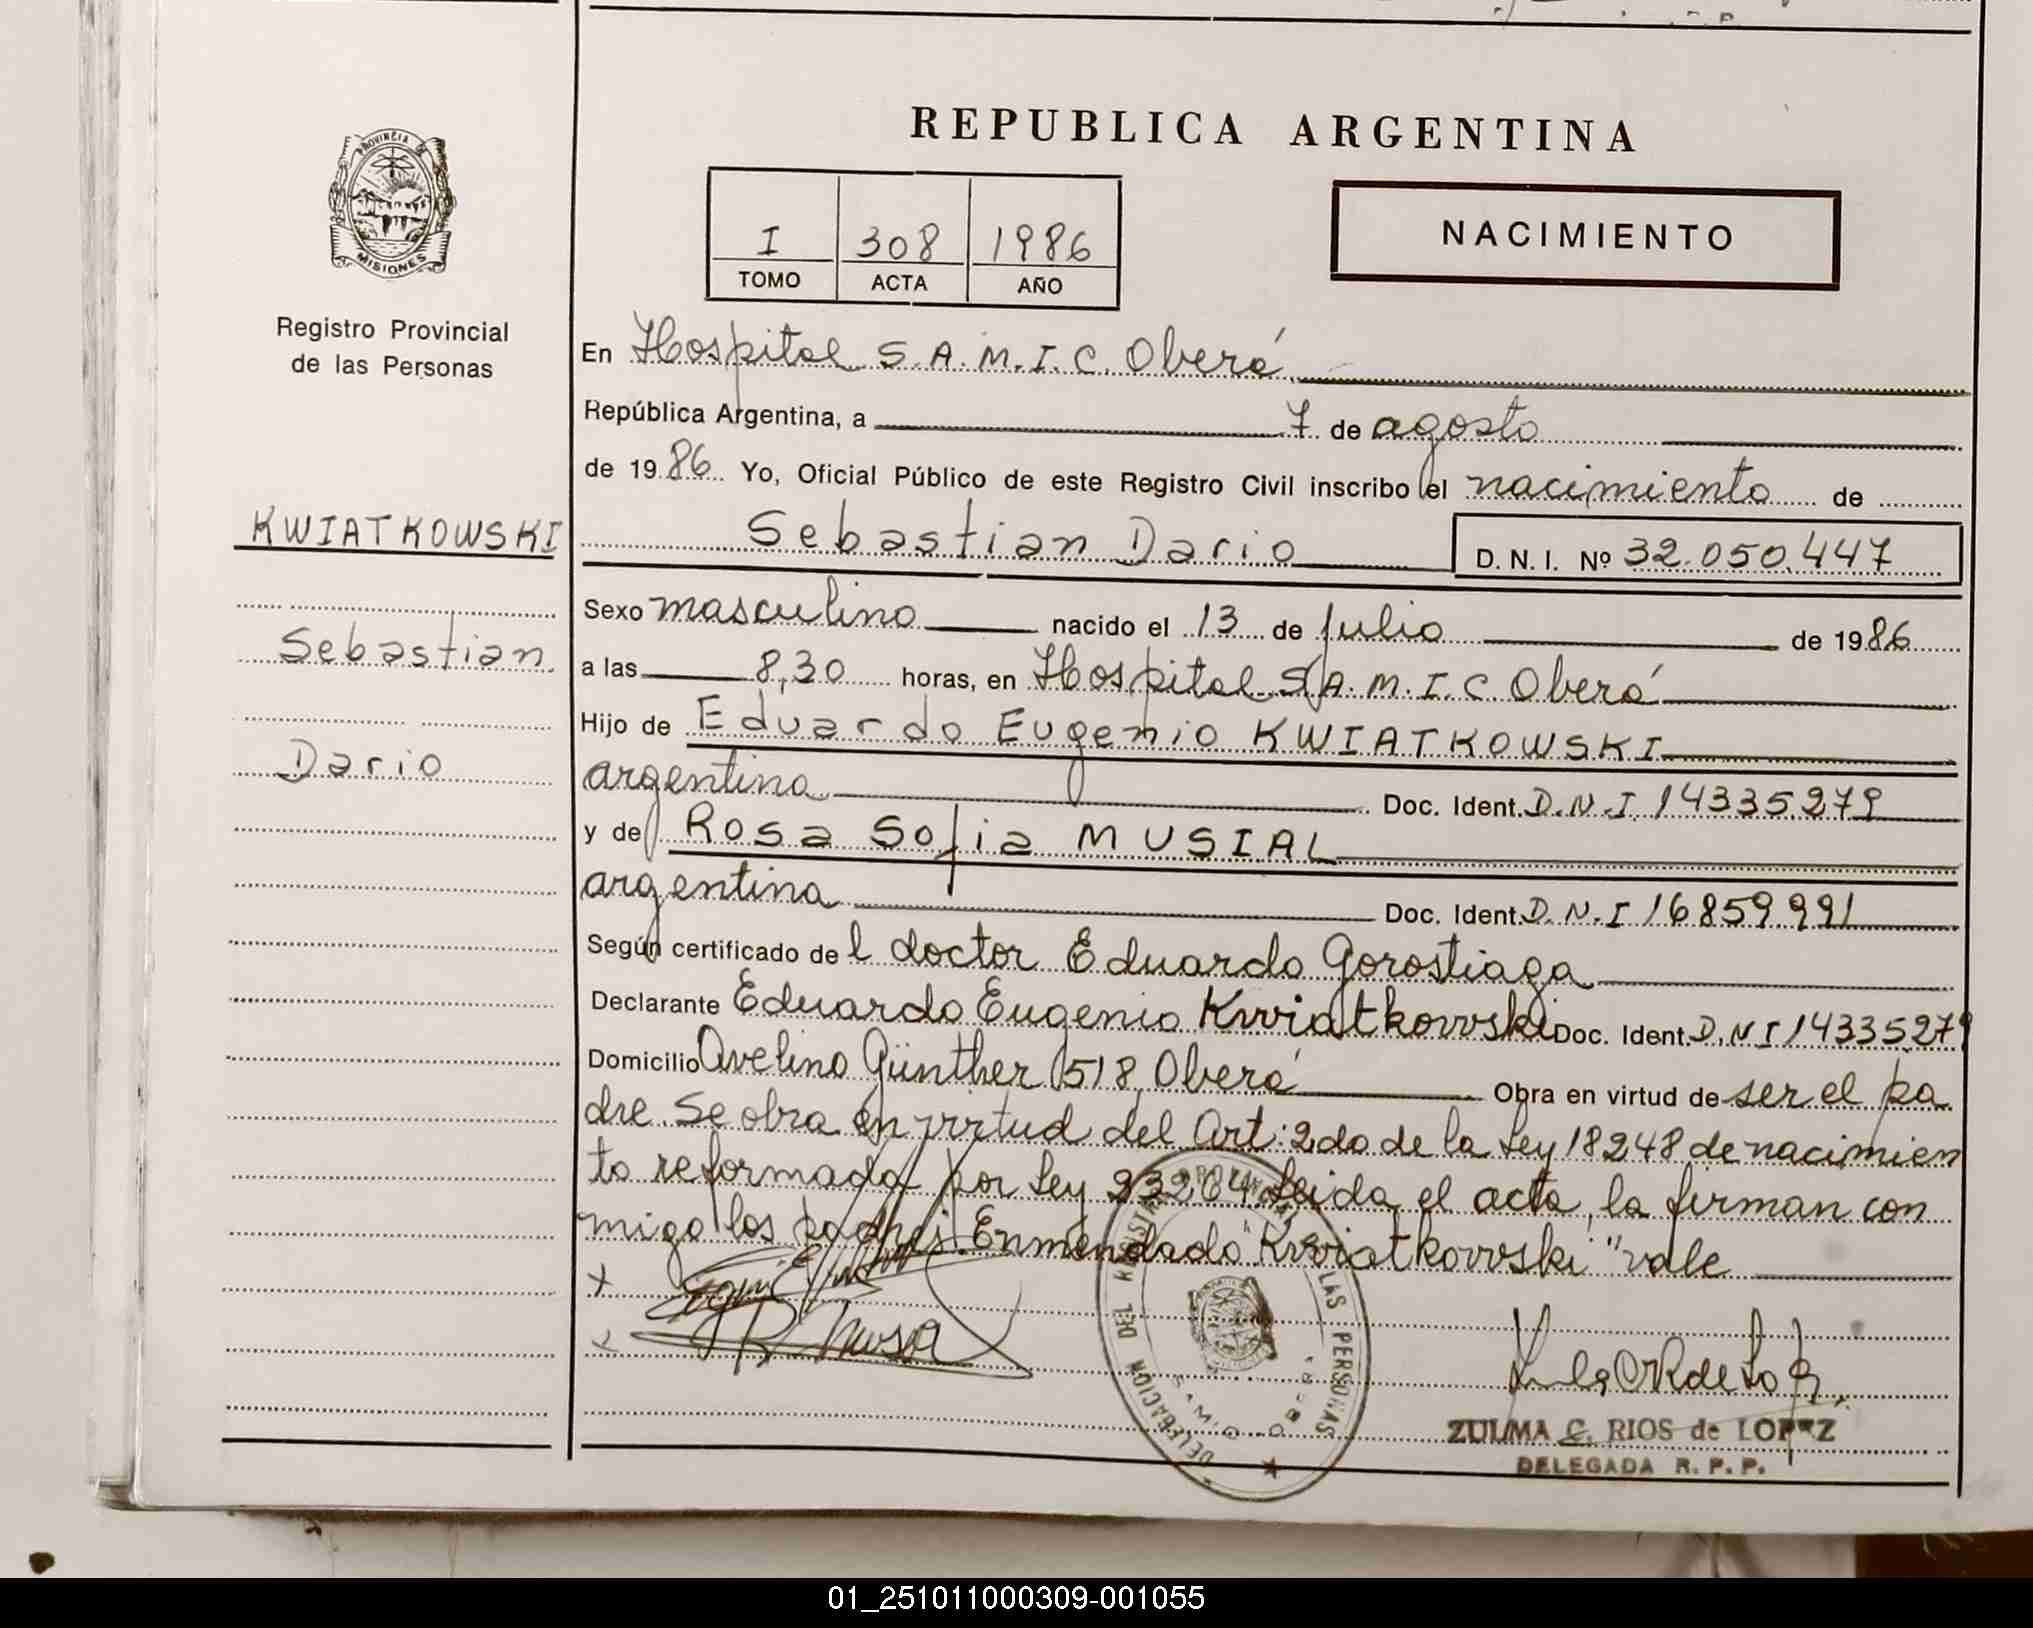 REPUBLICA ARGENTINA
PROVINCIA DE
MISIONES
Registro Provincial
de las Personas
I 308 1986
TOMO ACTA AÑO
NACIMIENTO
En Hospital S.A.M.I.C. Oberá
República Argentina, a 7 de agosto
de 1986 Yo, Oficial Público de este Registro Civil inscribo el nacimiento de
KWIATKOWSKI
Sebastian Dario D. N. I. Nº 32.050.447
Sebastian
Dario
Sexo masculino nacido el 13 de julio de 1986
a las 8,30 horas, en Hospital S.A.M.I.C Oberá
Hijo de Eduardo Eugenio KWIATKOWSKI
argentina Doc. Ident. D.N.I. 14335279
y de Rosa Sofia MUSIAL
argentina Doc. Ident. D.N.I 16859991
Según certificado de l doctor Eduardo Gorostiaga
Declarante Eduardo Eugenio Kwiatkowski Doc. Ident. D.N I 14335279
Domicilio Avelino Günther 518 Oberá Obra en virtud de ser el pa
dre. Se obra en virtud del Art: 2do de la Ley 18248 de nacimien
to reformada por Ley 23264 Leida el acta, la firman con
migo los padres. Enmendado "Kwiatkowski" vale
DELEGACION DEL REGISTRO LAS PERSONAS
SAMIC
ZULMA C. RIOS de LOPEZ
DELEGADA R. P. P.
01_251011000309-001055